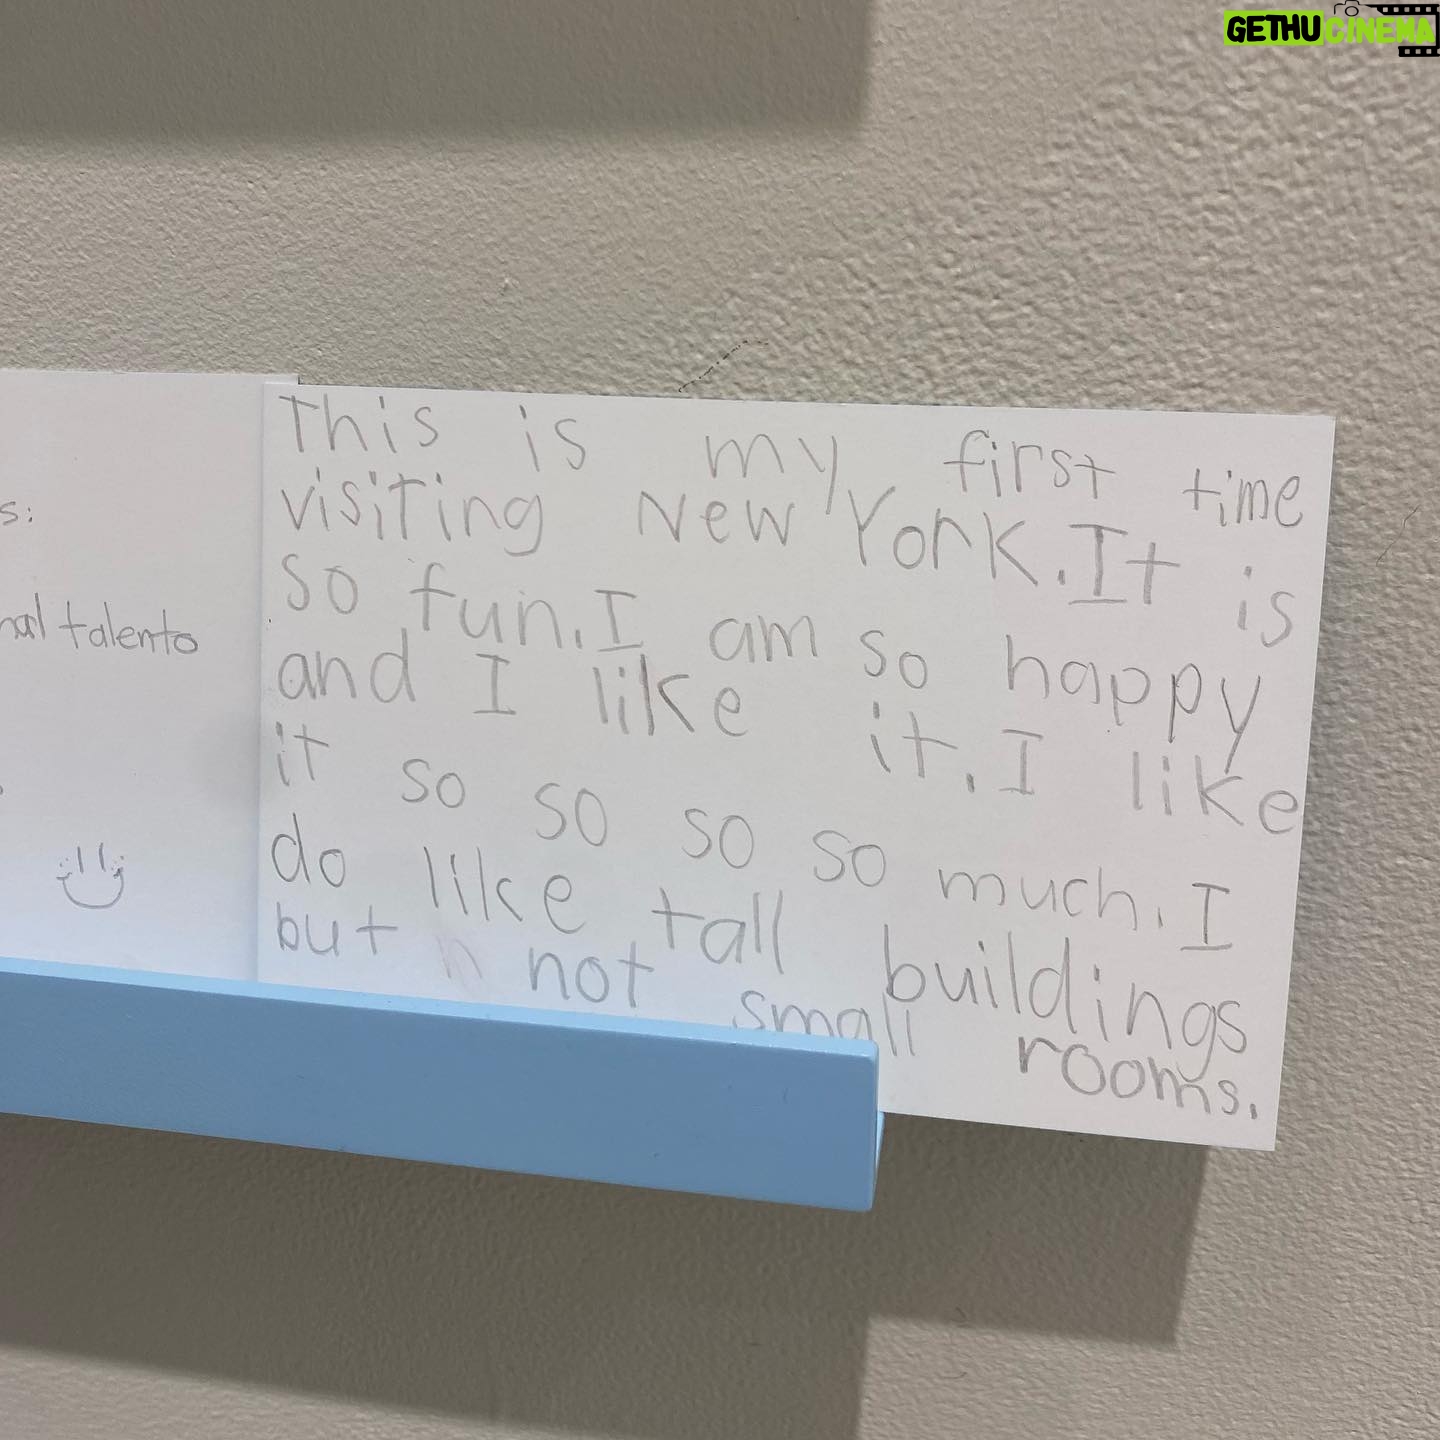 GETHU CINEMA
This is my first time
visiting New York. It is
so fun. I am so happy
and I like it. I like
it so so so so much. I
do like tall buildings
but not small rooms.
s:
talento